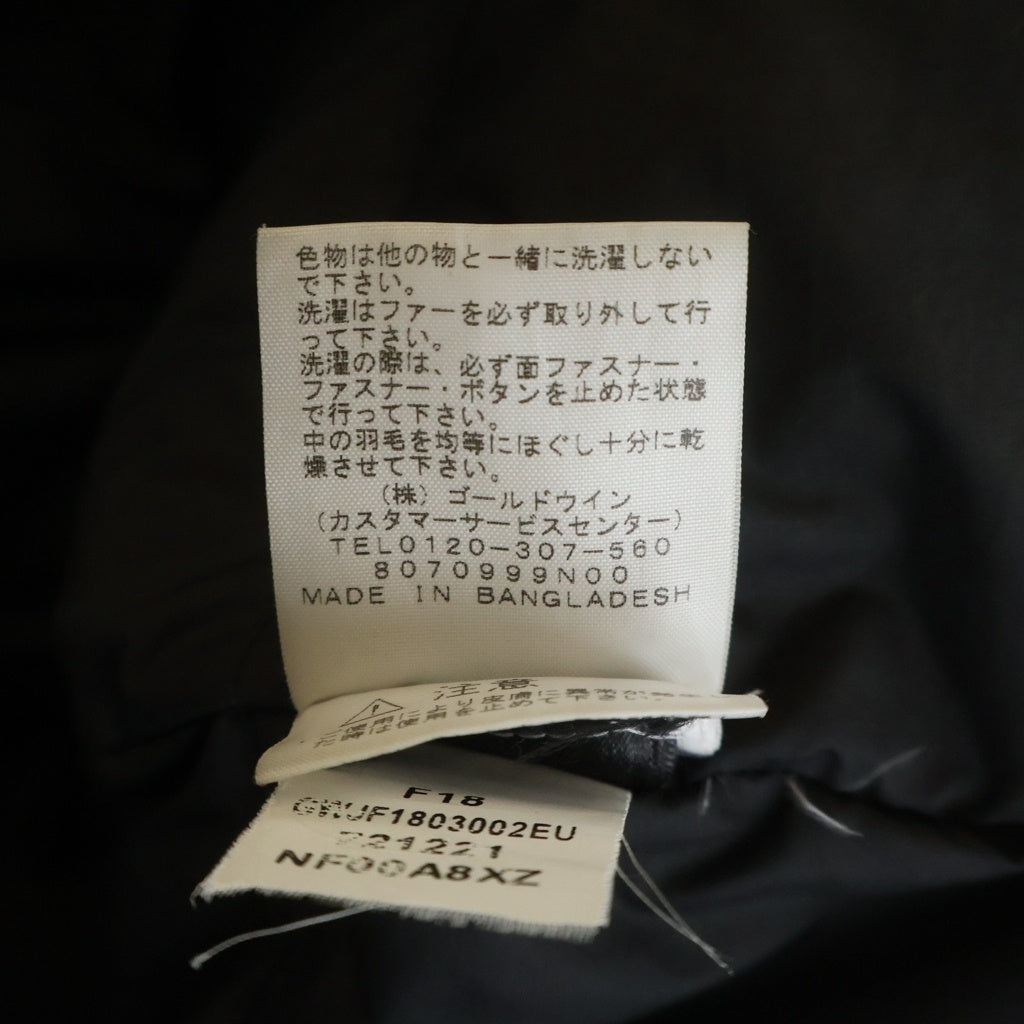 色物は他の物と一緒に洗濯しない
で下さい。
洗濯はファーを必ず取り外して行
って下さい。
洗濯の際は、必ず面ファスナー・
ファスナー・ボタンを止めた状態
で行って下さい。
中の羽毛を均等にほぐし十分に乾
燥させて下さい。
(株) ゴールドウイン
(カスタマーサービスセンター)
TEL0120-307-560
8070999N00
MADE IN BANGLADESH
注意
ご使用により皮膚に異常が
た時は使用を止めて下さい。
F18
721221
NF00A8XZ